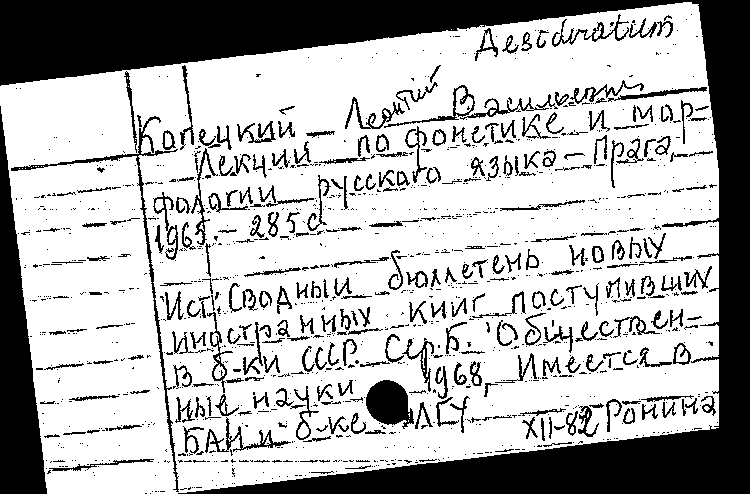 Desiduratum
Копецкий – Леонтий Васильевич
Лекции по фонетике и мор-
фологии русского языка – Прага,
1965. – 285 с
Ист: Сводный бюллетень новых
иностранных книг поступивших
в б-ки СССР. Сер.Б. Обществен-
ные науки 1968, Имеется в
БАН и б-ке ЛГУ
XII-82 Ронина